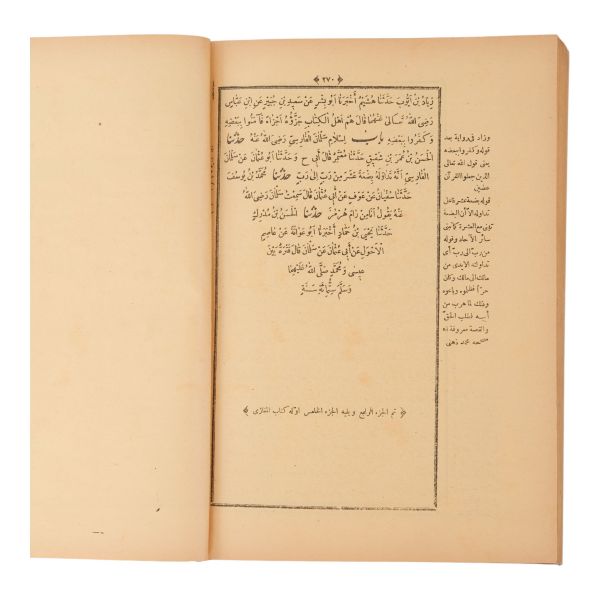 ﴿ ٢٧٠ ﴾
زِيَادُ بْنُ أَيُّوبَ حَدَّثَنَا هُشَيْمٌ أَخْبَرَنَا أَبُو بِشْرٍ عَنْ سَعِيدِ بْنِ جُبَيْرٍ عَنِ ابْنِ عَبَّاسٍ
رَضِىَ اللهُ تَعَالَى عَنْهُمَا قَالَ هُمْ أَهْلُ الْكِتَابِ جَزَّؤُهُ أَجْزَاءً فَآمَنُوا بِبَعْضِهِ
وَكَفَرُوا بِبَعْضِهِ بَابُ إِسْلَامِ سَلْمَانَ الْفَارِسِيِّ رَضِىَ اللهُ عَنْهُ حَدَّثَنَا
الْحَسَنُ بْنُ عُمَرَ بْنِ شَقِيقٍ حَدَّثَنَا مُعْتَمِرٌ قَالَ أَبِى ح وَحَدَّثَنَا أَبُو عُثْمَانَ عَنْ سَلْمَانَ
الْفَارِسِيِّ أَنَّهُ تَدَاوَلَهُ بِضْعَةَ عَشَرَ مِنْ رَبٍّ إِلَى رَبٍّ حَدَّثَنَا مُحَمَّدُ بْنُ يُوسُفَ
حَدَّثَنَا سُفْيَانُ عَنْ عَوْفٍ عَنْ أَبِى عُثْمَانَ قَالَ سَمِعْتُ سَلْمَانَ رَضِىَ اللهُ
عَنْهُ يَقُولُ أَنَا مِنْ رَامَ هُرْمُزَ حَدَّثَنَا الْحَسَنُ بْنُ مُدْرِكٍ
حَدَّثَنَا يَحْيَى بْنُ حَمَّادٍ أَخْبَرَنَا أَبُو عَوَانَةَ عَنْ عَاصِمٍ
الْأَحْوَلِ عَنْ أَبِى عُثْمَانَ عَنْ سَلْمَانَ قَالَ فَتْرَةُ بَيْنَ
عِيسَى وَمُحَمَّدٍ صَلَّى اللهُ عَلَيْهِمَا
وَسَلَّمَ سِتُّمِائَةِ سَنَةٍ
﴿ تم الجزء الرابع ويليه الجزء الخامس اوله كتاب المغازى ﴾
وزاد فى رواية بعد
قوله وكفروا ببعضه
يعنى قول الله تعالى
الذين جعلوا القرآن
عضين
قوله بضعة عشر فاعل
تداوله الا أن البضعة
سائر الآحاد وقوله
من رب الى رب أى
تداولته الايدى من
مالك الى مالك وكان
وذلك لما هرب من
أبيه لطلب الحق
والقصة معروفة اه
مصححه محمد ذهنى